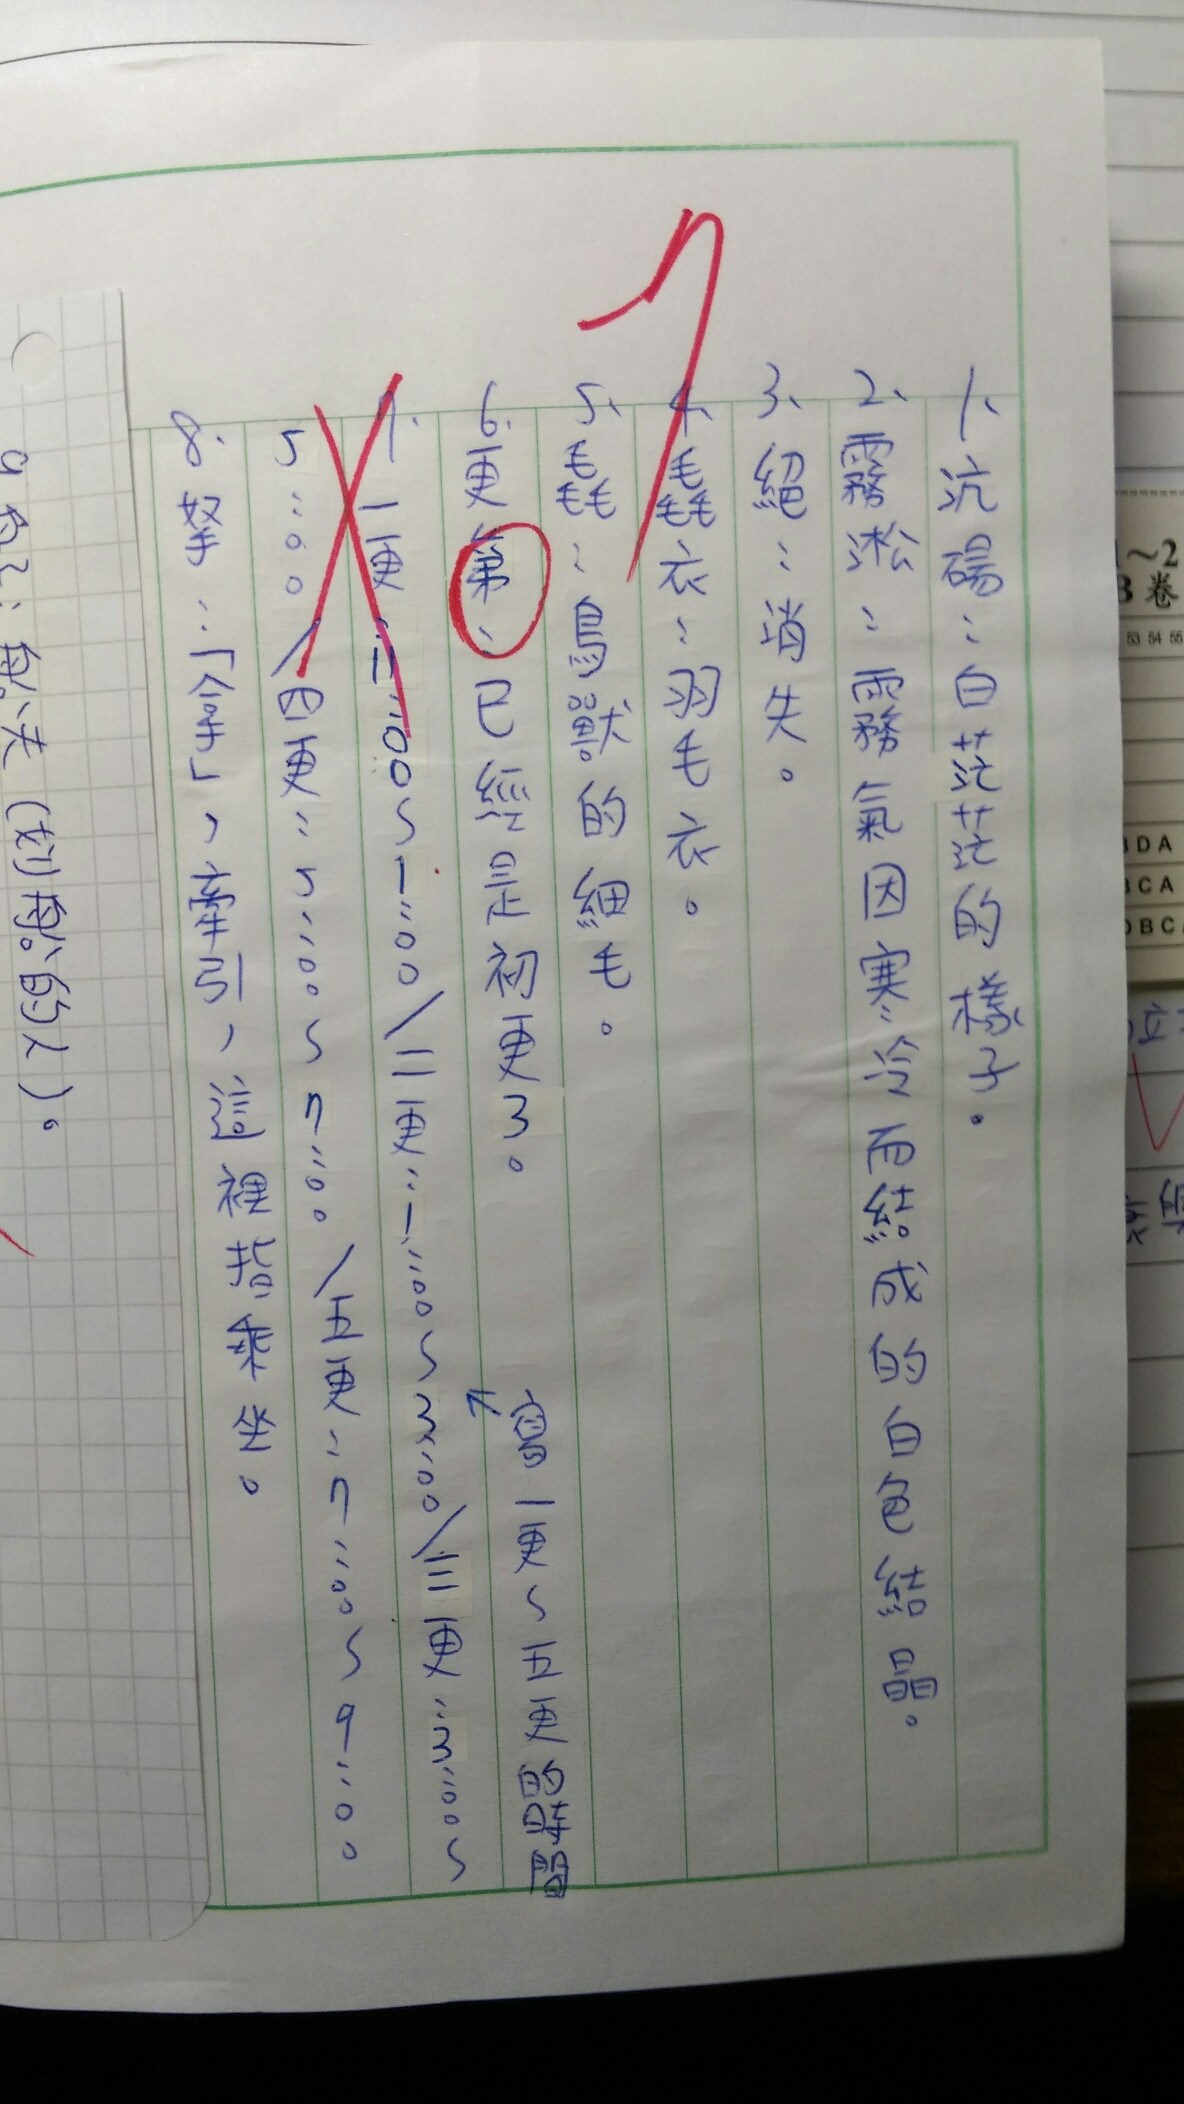 1、沆碭：白茫茫的樣子。
2、霧淞：霧氣因寒冷而結成的白色結晶。
3、絕：消失。
4、毳衣：羽毛衣。
5、毳：鳥獸的細毛。
6、更第：已經是初更了。
寫一更~五更的時間
7、一更：11:00~1:00/二更：1:00~3:00/三更：3:00~
5:00/四更：5:00~7:00/五更：7:00~9:00
8、拏：「拿」，牽引，這裡指乘坐。
(划船的人)。
1~2
B卷
53 54 55
BDA
BCA
DBCA